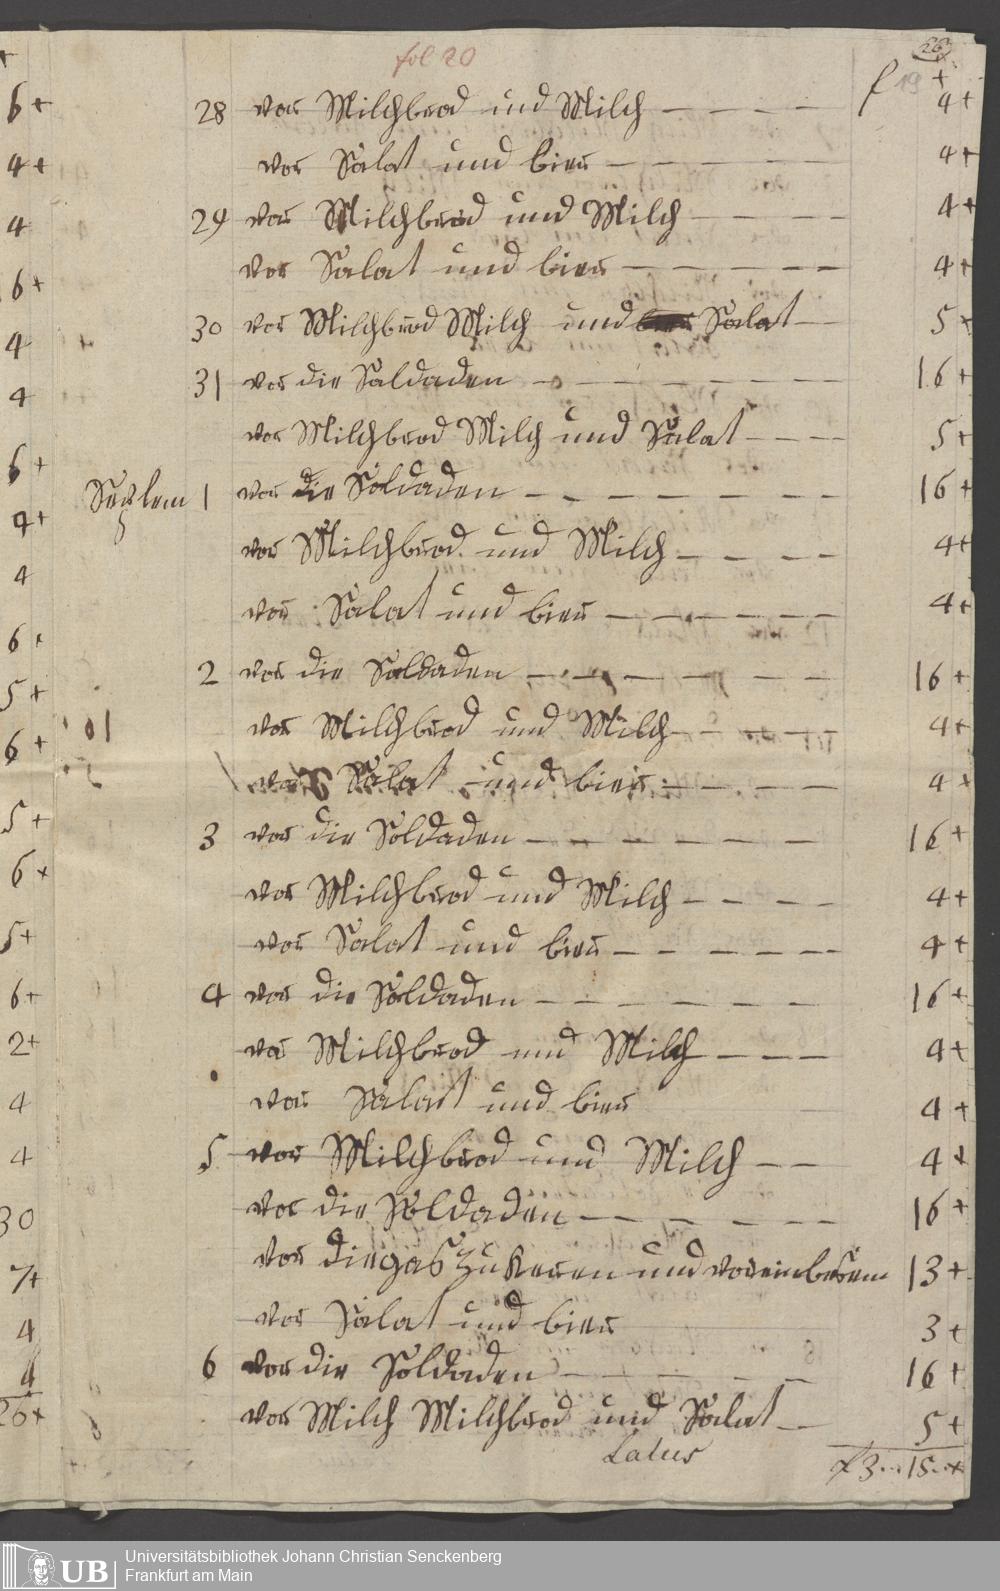 26
fol 20
f 19 +
28 vor Milchbrod und Milch — — — — 4+
vor Salat und bier — — — — — 4+
29 vor Milchbrod und Milch — — — — 4+
vor Salat und bier — — — — — 4+
30 vor Milchbrod Milch und Salat — 5+
31 vor die Saldaden — — — — — — 16+
vor Milchbrod Milch und Salat — — — — 5+
1 vor die Soldaden — — — — — — — 16+
vor Milchbrod und Milch — — — — 4+
vor Salat und bier — — — — — — 4+
2 vor die Soldaden — — — — — — — 16+
vor Milchbrod und Milch — — — — — 4+
vor Salat und bier — — — — — 4+
3 vor die Soldaden — — — — — — — 16+
vor Milchbrod und Milch — — — — 4+
vor Salat und bier — — — — — — 4+
4 vor die Soldaden — — — — — — — 16+
vor Milchbrod und Milch — — — 4+
vor Salat und bier 4+
5 vor Milchbrod und Milch — — 4+
vor die Soldaden — — — — — — 16+
vor die gas zu keren und vor ein besem 13+
vor Salat und bier 3+
6 vor die Soldaden — — — — — — 16+
vor Milch Milchbrod und Salat — 5+
Latus f 3 .. 15 .. +
6+
4+
4
6+
4
4
6+
4+
4
6+
5+
6+
5+
6+
5+
6+
2+
4
4
30
7+
4
4
26+
UB
Universitätsbibliothek Johann Christian Senckenberg
Frankfurt am Main